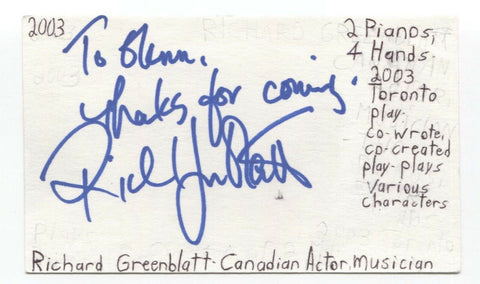 2003
To Glenn,
thanks for coming.
Richard Greenblatt
2 Pianos,
4 Hands.
2003
Toronto
play-
co-wrote,
co-created
play-plays
various
characters
Richard Greenblatt-Canadian Actor, Musician